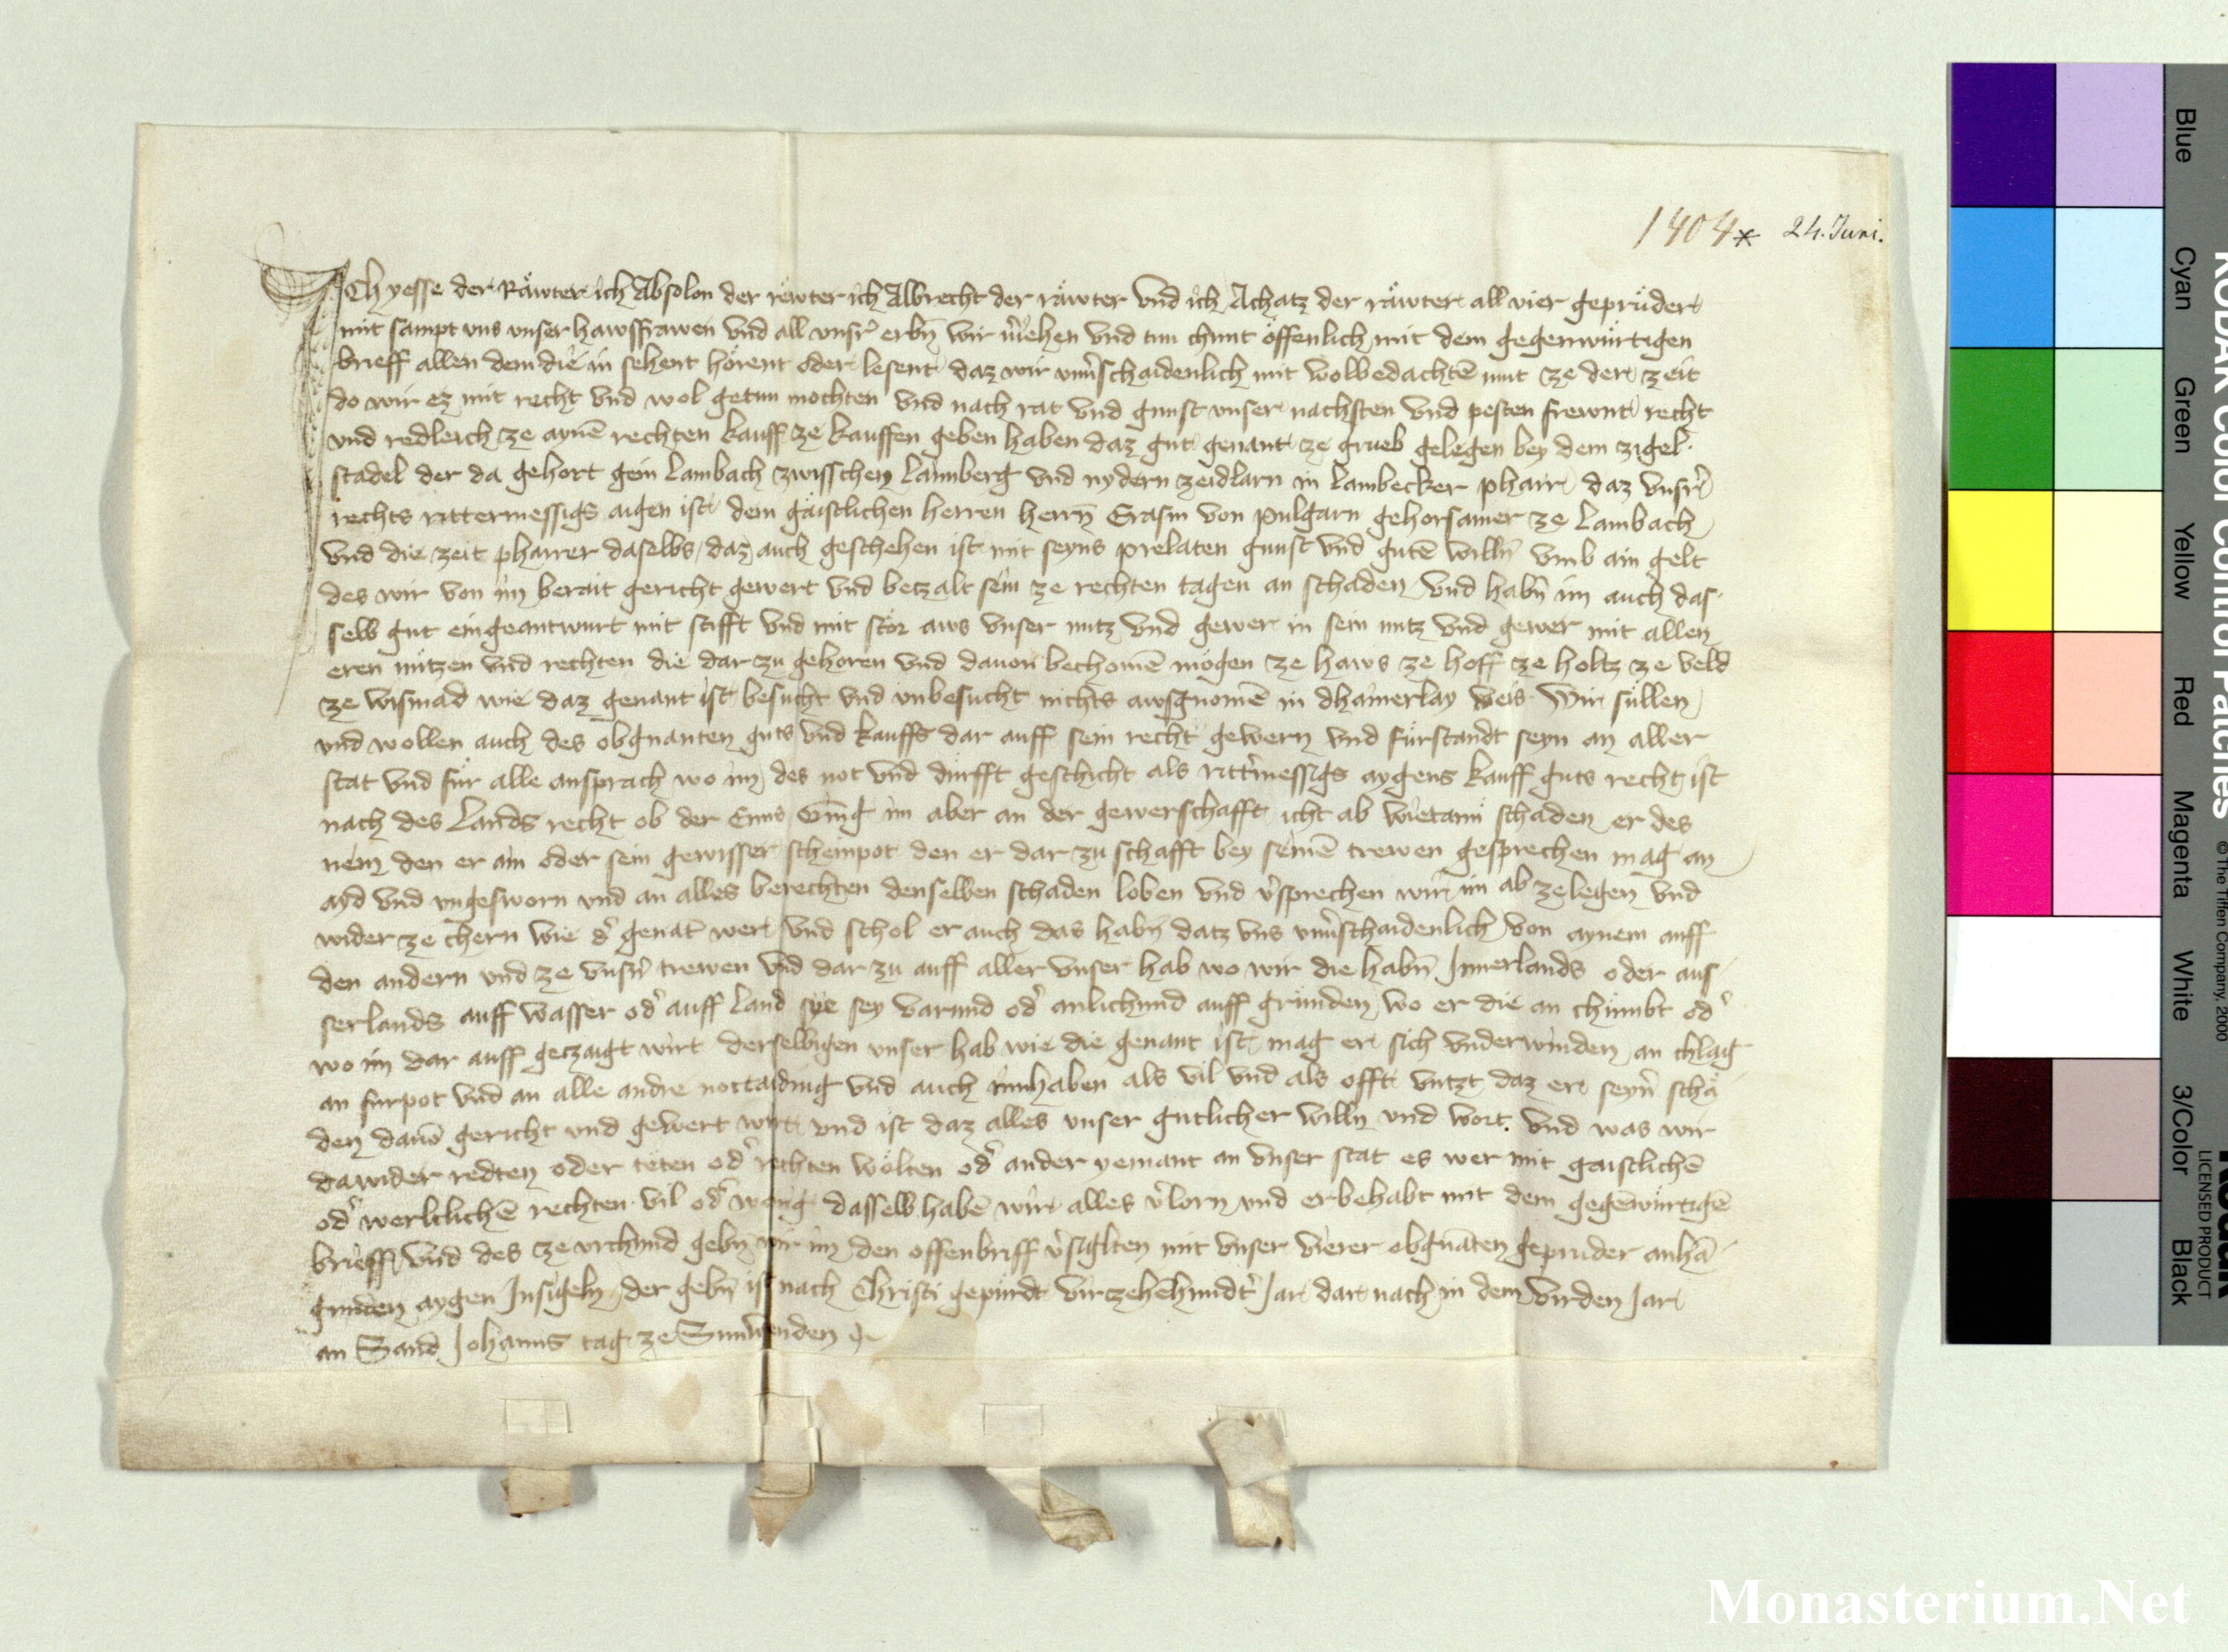 1404* 24. Juni.
Ich yesse der Räwter ich Absolon der räwter ich Albrecht der räwter vnd ich Achatz der räwter all vier geprüder
mit sampt vns vnser hawsfrawen vnd all vnsr̾ erbn̄ wir v̾iehen vnd tun chunt offenlich mit dem gegenwürtigen
brieff allen dem die in sehent hörent oder lesent daz wir vnu̾schaidenlich mit wolbedachtē mut ze der zeit
do wir ez mit recht vnd wol getun mochten vnd nach rat vnd gunst vnser nachsten vnd pesten frewnt recht
vnd redleich ze aynē rechten kauff ze kauffen geben haben daz gut genant ze grueb gelegen bey dem zigel
stadel der da gehort gein Lambach zwisschen Lannberg vnd nydern zeidlarn in Lambecker pharr daz vnsr̾
rechts rittermessigs aigen ist dem gäistlichen herren herrn̄ Erasm von pulgarn gehorsamer ze Lambach
vnd die zeit pharrer daselbs daz auch geschehen ist mit seyns prelaten gunst vnd gutē willn̄ vmb ain gelt
des wir von im berait gericht gewert vnd betzalt sein ze rechten tagen an schaden vnd habn̄ im auch das
selb gut eingeantwurt mit stifft vnd mit stör aws vnser nutz vnd gewer in sein nutz vnd gewer mit allen
eren nützen vnd rechten die dar zu gehoren vnd dauon bechomē mögen ze haws ze hoff ze holtz ze veld
ze wismad wie daz genant ist besucht vnd vnbesucht nichts awsgnomē in dhainerlay weis Wir süllen
vnd wollen auch des obgnanten guts vnd kauffs dar auff sein recht gewern vnd fürstandt seyn an aller
stat vnd für alle ansprach wo im des not vnd dürfft geschicht als ritt̾messigs aygens kauff guts recht ist
nach des Lands recht ob der Enns Gi̅ng im aber an der gewerschafft icht ab wietani schaden er des
nem den er ain oder sein gewisser schempot den er dar zu schafft bey seinē trewen gesprechen mag an
ayd vnd vngesworn vnd an alles berechten denselben schaden loben vnd v̾sprechen wir im ab zelegen vnd
wider ze chern wie d̾ genāt wer vnd schol er auch das habn̄ datz vns vnu̾schaidenlich von aynem auff
den andern vnd ze vnsn̾ trewen vnd dar zu auff aller vnser hab wo wir die habn̄ Innerlands oder aus
serlands auff wasser od̾ auff land sye sey varund od̾ anlichund auff gründen wo er die an chumbt od̾
wo im dar auff getzaigt wirt derselbigen vnser hab wie die genant ist mag er sich vnderwinden an chlag
an furpot vnd an alle andre nottaiding vnd auch innhaben als vil vnd als offt vntzt daz er seyn̾ schä
den dauō gericht vnd gewert wirt vnd ist daz alles vnser gutlicher willn vnd wort. vnd was wir
dawider redten oder täten od̾ rechten wolten od̾ ander yemant an vnser stat es wer mit gaistlichē
od̾ werltlichē rechten vil od̾ wenig dasselb habē wir alles v̾lorn vnd er behabt mit dem gegēwürtigē
brieff vnd des ze vrchund gebn̄ wir im den offen briff v̾siglten mit vnser vierer obgnāten gepruder anhā
gunden aygen Insigeln der gebn̄ ist nach Christi gepürdt virczehēhundt̾ Jar dar nach in dem virden Jar
an Sand Johanns tag ze Sunwenden
Monasterium.Net
KODAK Color Control Patches
© The Tiffen Company, 2000
LICENSED PRODUCT
Blue
Cyan
Green
Yellow
Red
Magenta
White
3/Color
Black